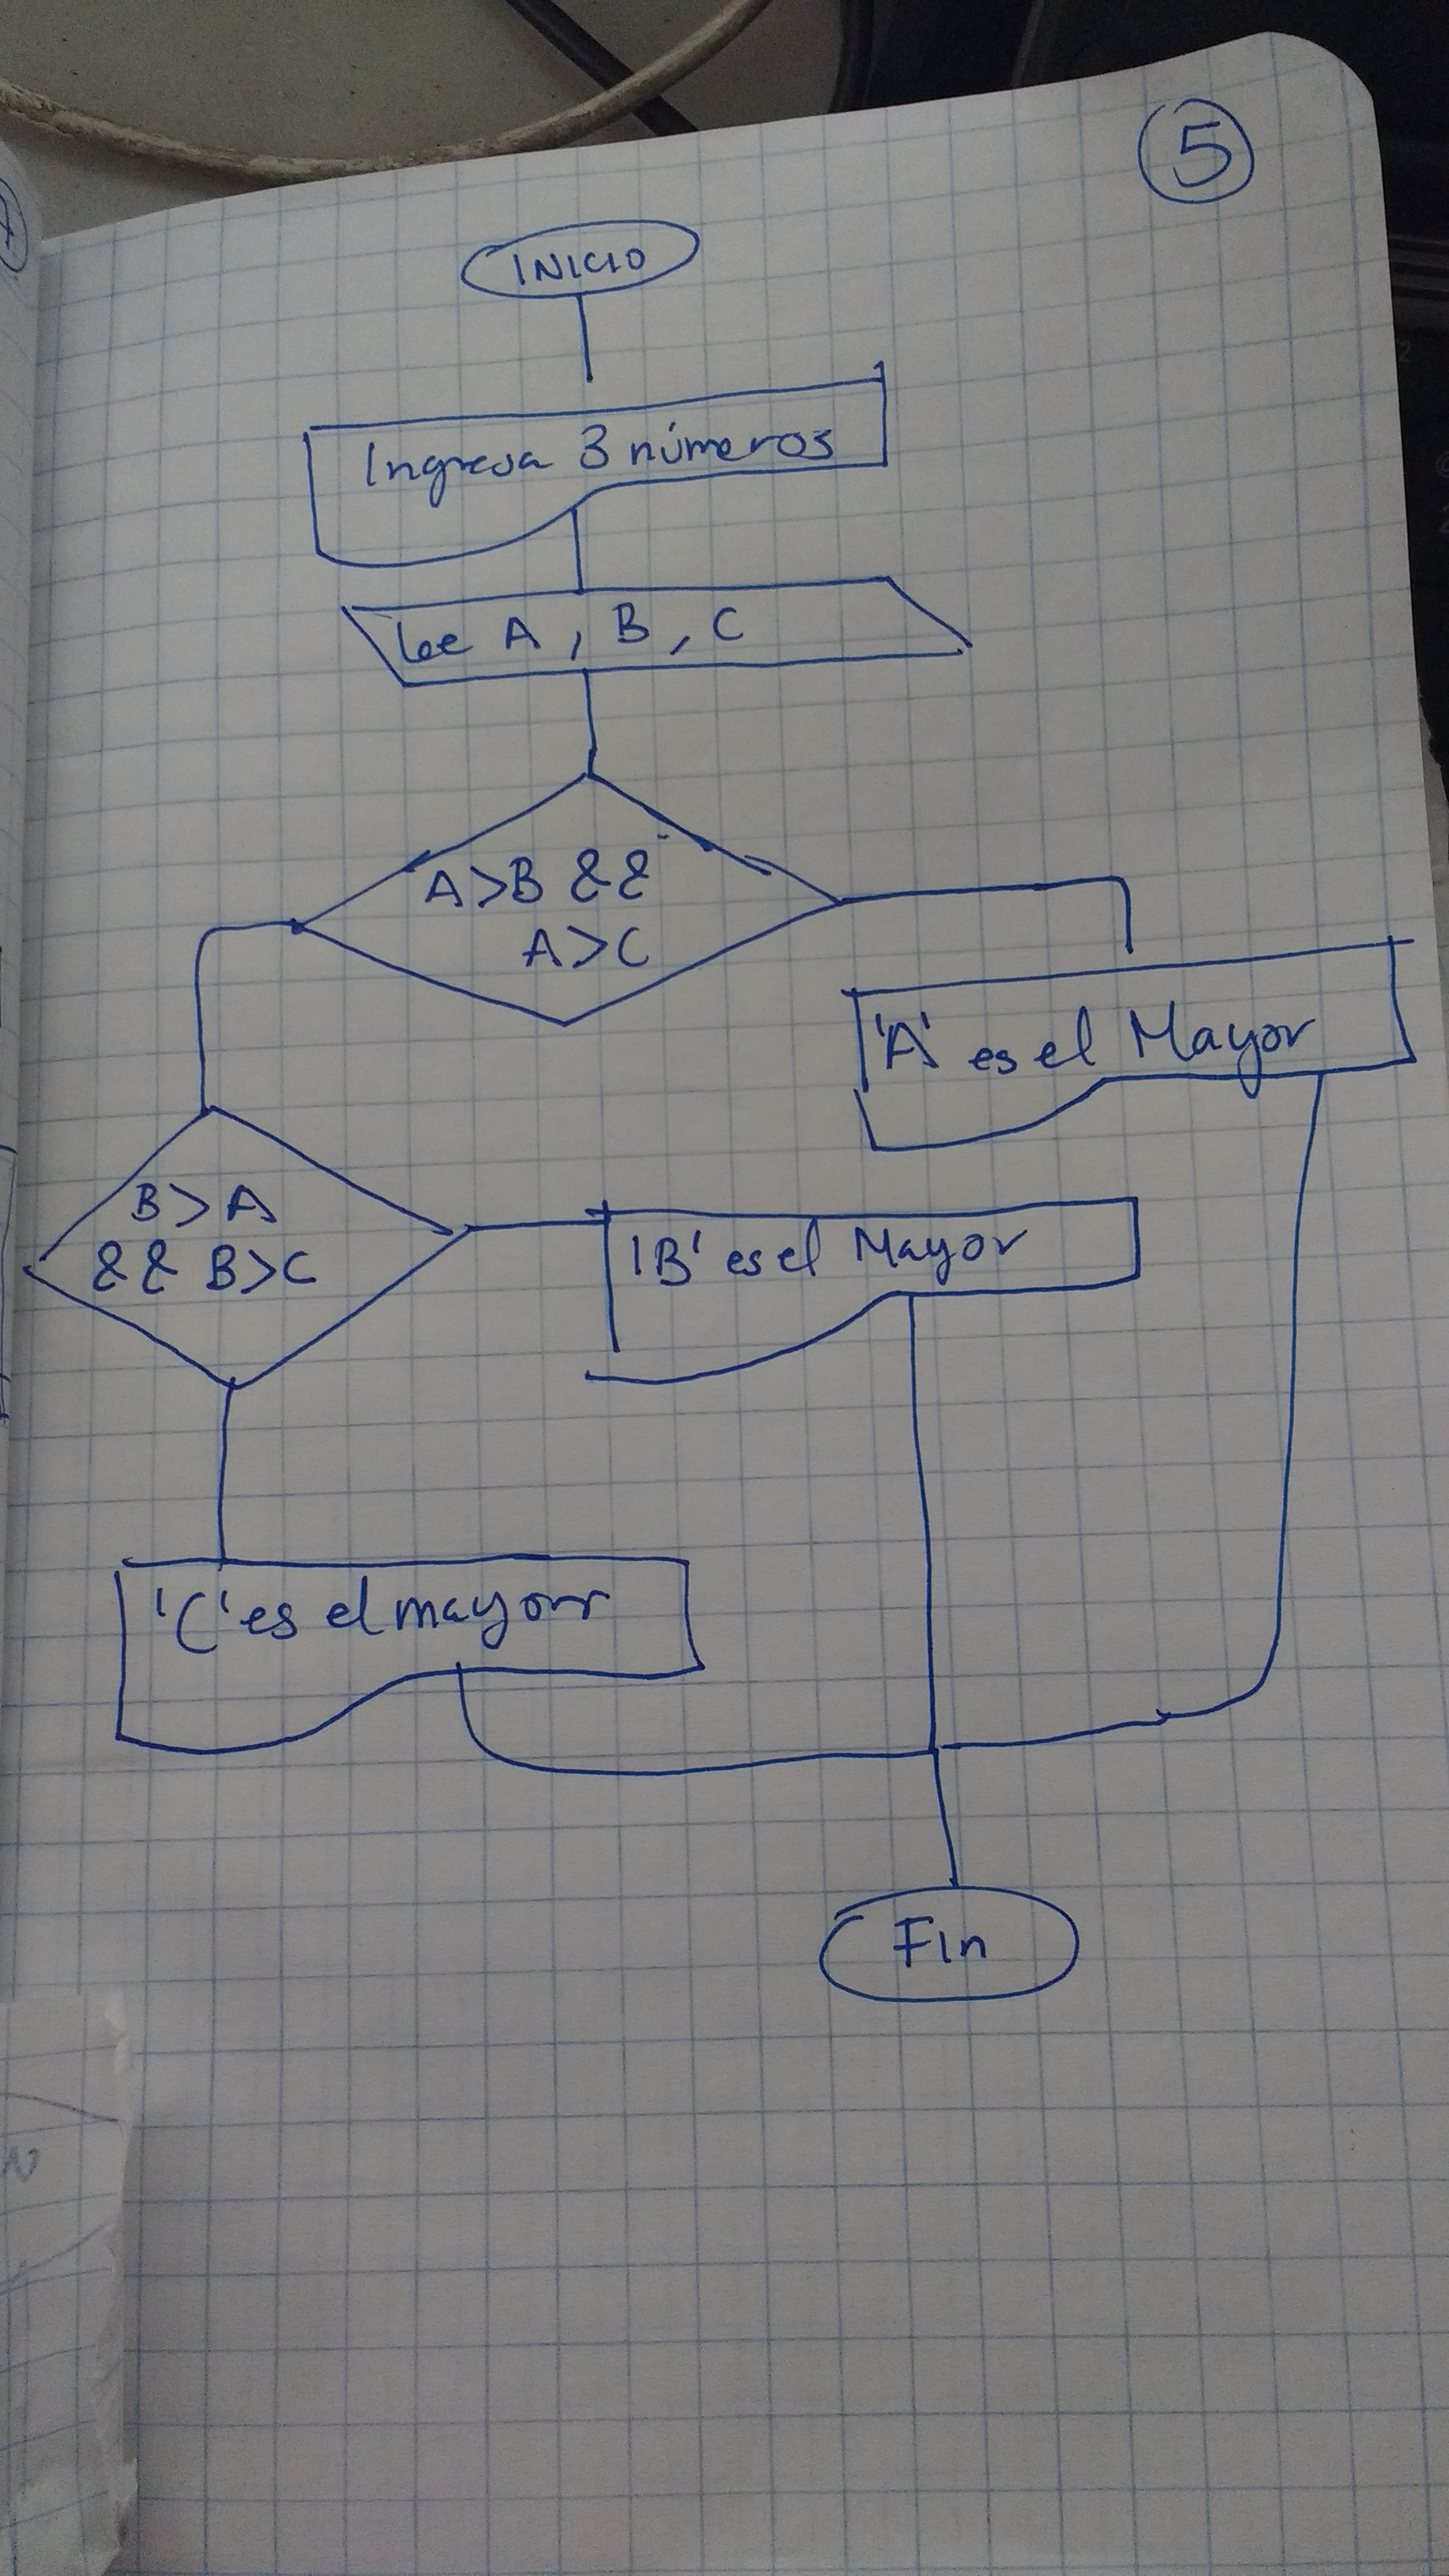 5
INICIO
Ingresa 3 números
Lee A, B, C
A>B &&
A>C
'A' es el Mayor
B>A
&& B>C
'B' es el Mayor
'C' es el mayor
Fin